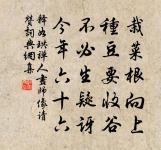 栽菜根向上
種豆要收谷
不必生疑訝
今年六十六
釋如珙禪人畫師像請
贊詞典網集